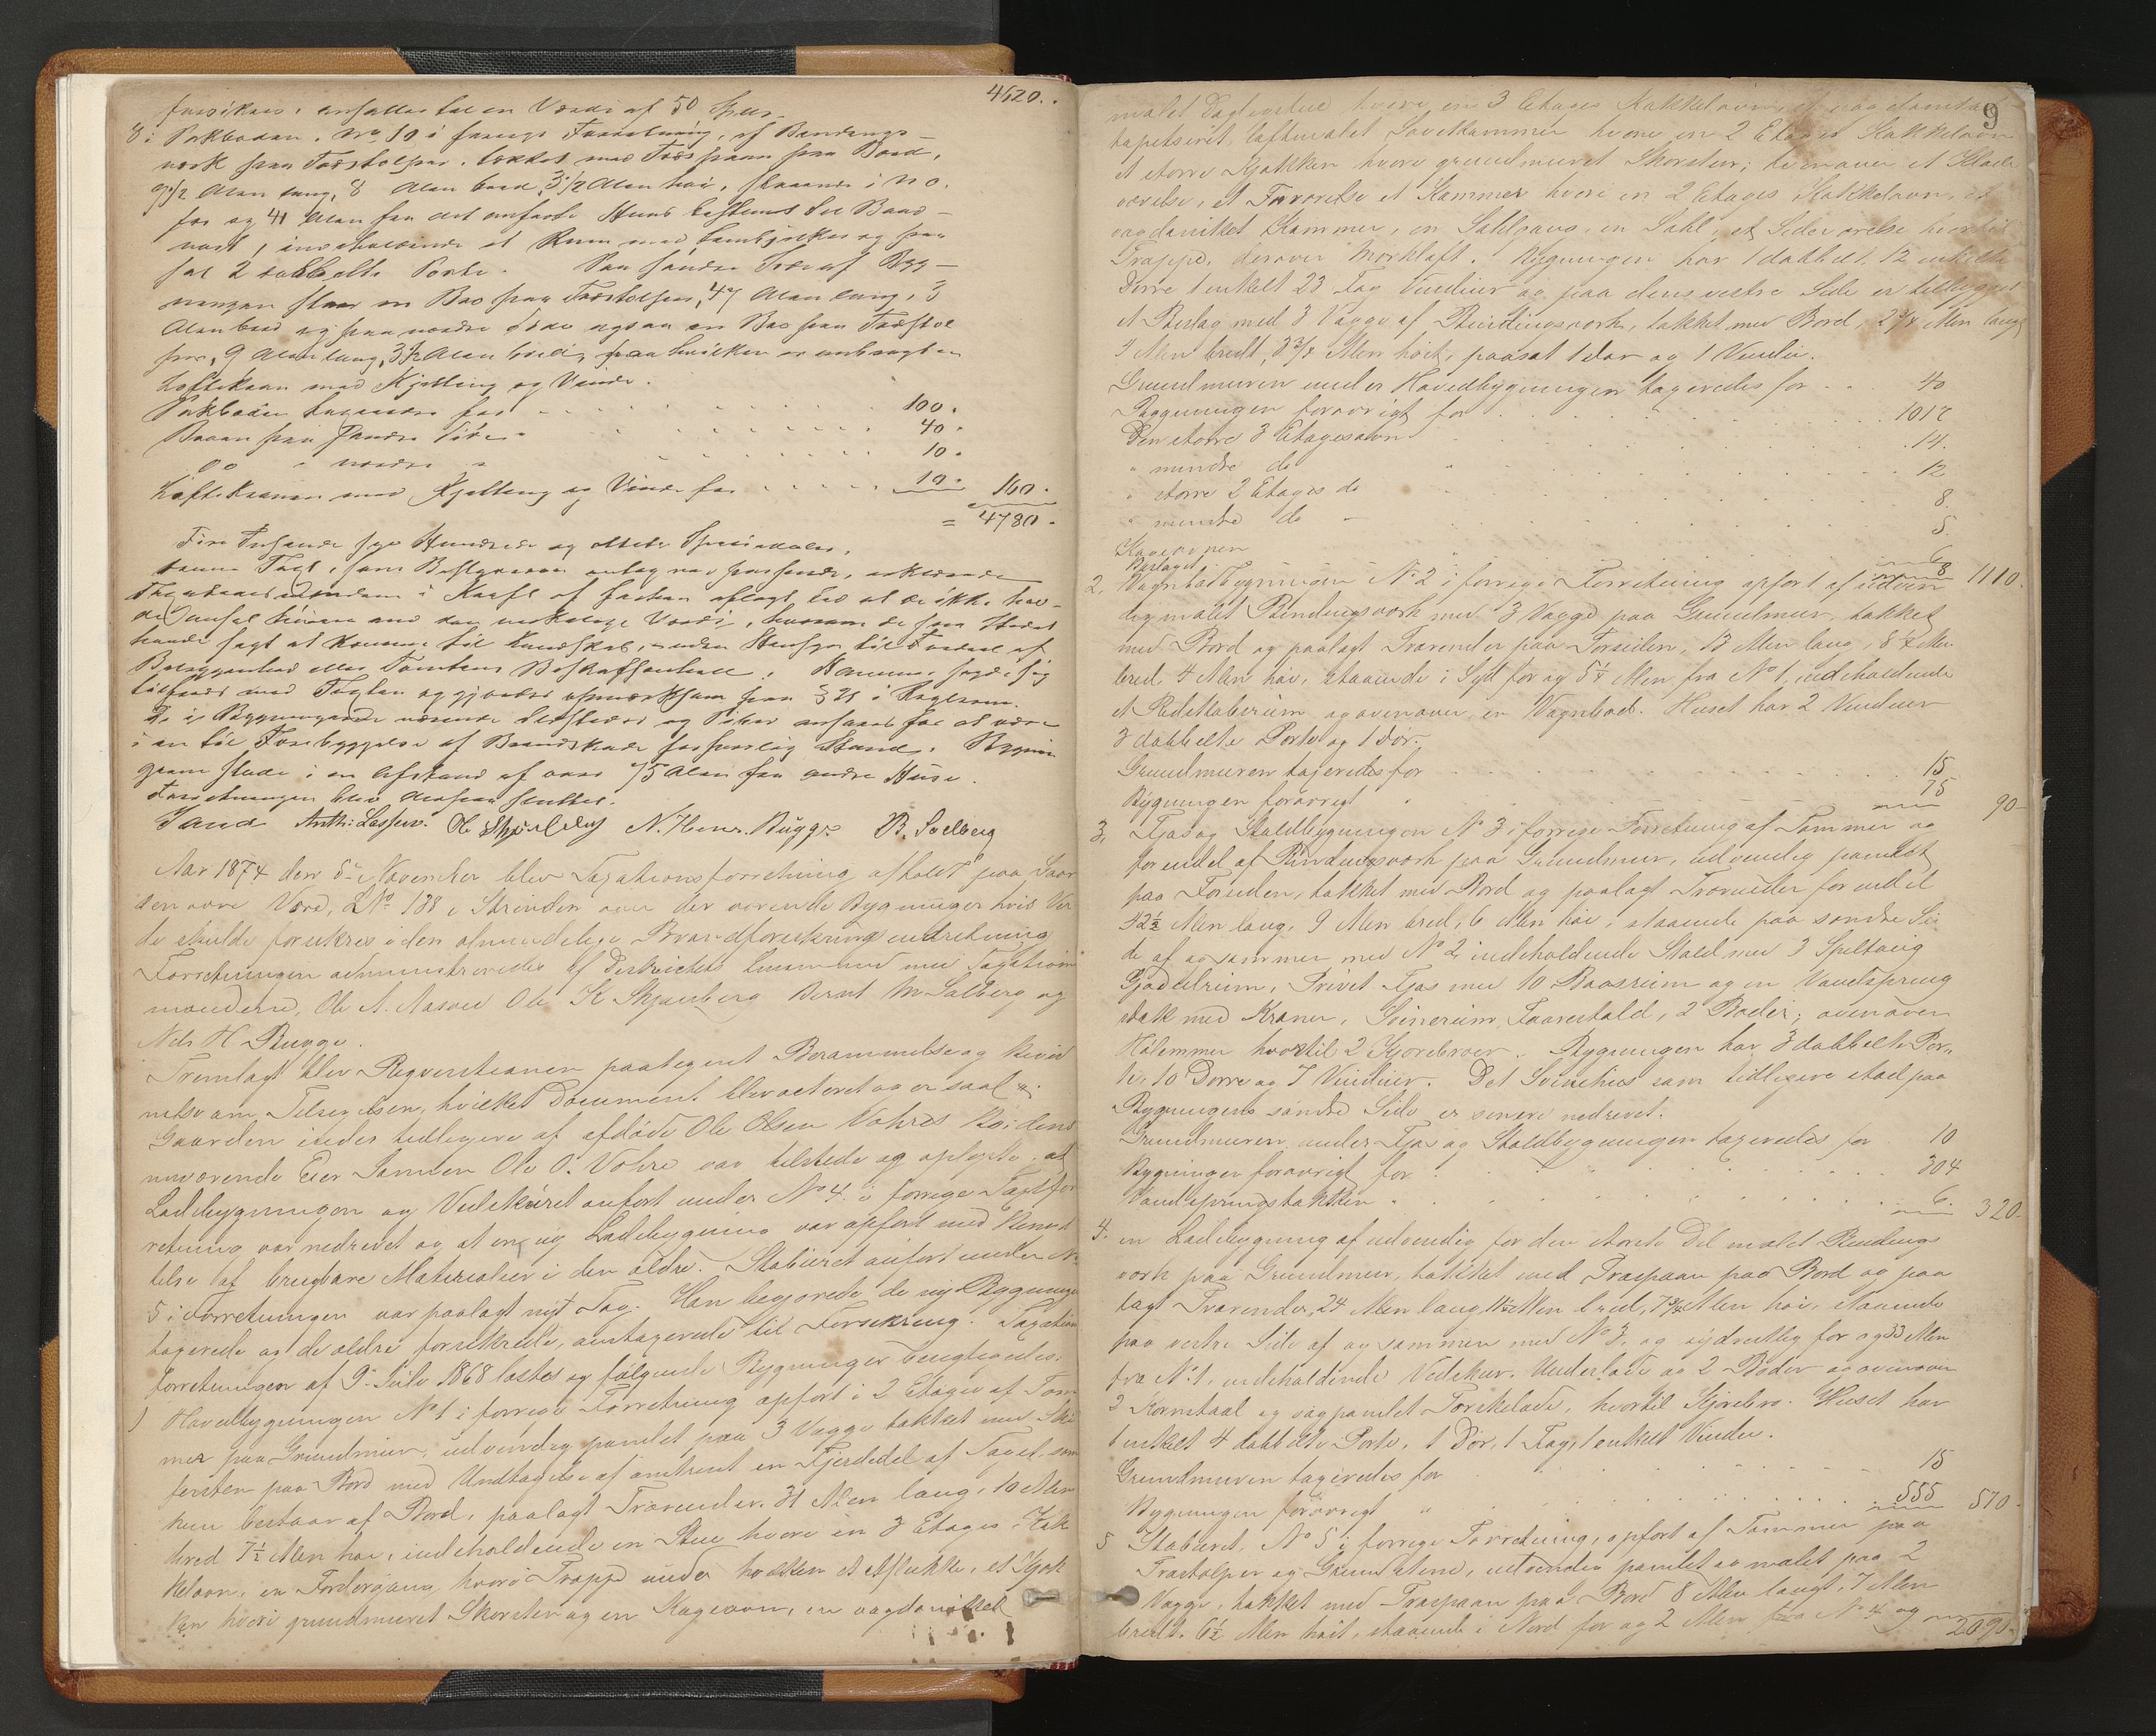 4620.
forsikres, ansattes til en Værdi af 50 Spdlr
8: Pakboden, No 10 i forrige Forretning, af Bindings-
værk paa Træstolper, tækket med Træspaan paa Bord,
9 1/2 Alen lang, 8 Alen bred, 3 1/2 Alen høi, staaende i No.
for og 41 Alen fra det anførte Huus bestemt til Baad-
nøst, indeholdende et Rum med og paa
samt 2 dobbelte Porte. Paa søndre Side af Byg-
ningen staar en Bro paa Træstolper, 47 Alen lang, 3
Alen bred og paa nordre Side ogsaa en Bro paa Træstol
per, 9 Alen lang, 3 1/2 Alen bred, paa hvilken er anbragt en
Løftekran med Kjetting og Vinde.
Pakboden taxeredes for 100.
Broen paa søndre Side 40.
Do " nordre " 10.
Løftekranen med Kjetting og Vinde for 10. 160.
= 4780.
Fire Tusende syv Hundrede og otteti Speciedaler.
denne Taxt, som Bestyreren antog var passende, erklærede
Taxationsmændene i Kraft af forhen aflagt Ed at de ikke hav-
de ansat høiere end den virkelige Værdi, hvorom de paa Stedet
havde søgt at komme til Kundskab, uden Hensyn til Fordeel af
Beliggenhed eller Tomtens Beskaffenhed. sagde sig
tilfreds med Taxten og gjordes opmærksom paa § 21 i Reglem.
De i Bygningerne værende Ildsteder og Piber ansaaes for at være
i en til Forebyggelse af Brandskade forsvarlig Stand. Bygnin
gerne stode i en Afstand af over 75 Alen fra andre Huse.
Forretningen blev derpaa sluttet.
Sand N. Henr. Bugge B. Solberg
Aar 1874 den 5te November blev Taxationsforretning afholdt paa Gaar
den øvre Vord, LNo 138 i Strinden over der værende Bygninger hvis Vær
di skulde forsikres i den almindelige Brandforsikringsindretning
Forretningen administreredes af Districtets Lensmand med Taxations
mændene, Ole A. Aasen Ole K Skjærberg Bernt M Solberg og
Nils H Bugge.
Fremlagt blev Reqvisitionen paategnet Berammelse og Bevid
netsom Tilsigelsen, hvilket Document blev acteret og er saal.
Gaarden eiedes tidligere af afdøde Ole Olsen Vohres
nuværende Eier Sønnen Ole O. Vohre var tilstede og oplyste at
Ladebygningen og Vedskuret anført under No 4 i forrige Taxtfor
retning var nedrevet og at en ny Ladebygning var opført med Benyt
telse af brugbare Materialier i den ældre. Stabburet anført under No
5 i Forretningen var paalagt nyt Tag. Han begjærede de nye Bygninger
taxerede og de ældre forsikrede, omtaxerede til Forsikring. Taxations
forretningen af 9de Juli 1868 læstes og følgende Bygninger besigtigedes:
1) Hovedbygningen No 1 i forrige Forretning opført i 2 Etager af Tøm
mer paa Grundmuur, udvendig panelet paa 3 Vægge tækket med Ski
fersten paa Bord med Undtagelse af omtrent en Fjerdedel af Taget som
kun bestaar af Bord, paalagt Trærender. 31 Alen lang, 10 Alen
bred 7 1/2 Alen høi, indeholdende en Stue hvori en 3 Etages Kak
kelovn, en Fordergang hvori Trappe under hvilken et Aflukke, et Kjøk
ken hvori grundmuret Skorsten og en Bageovn, en vagdoniket
9
malet Dagligstue hvori en 3 Etages Kakkelovn, et
tapetseret, loftmalet Sovekammer hvori en 2 Etages Kakkelovn
et større Kjøkken hvori grundmuret Skorsten; ovenover et Stads
værelse, et Forværelse et Kammer hvori en 2 Etages Kakkelovn, et
vagdoniket Kammer, en Sahlgang, en Sahl, et Sideværelse hvortil
Trappe, derover Mørkloft. Bygningen har 1 dobbelt, 12 enkelte
Dørre 1 enkelt 23 Fag Vinduer og paa dens vestre Side er tilbygget
et Bislag med 3 Vægge af Bindingsværk, tækket med Bord, 2 3/4 Alen langt
4 Alen bredt, 3 3/4 Alen høit, paasat 1 Dør og 1 Vindu.
Grundmuren under Hovedbygningen taxeredes for 40
Bygningen forøvrigt for 1017
Den større 3 Etagesovn 14.
" mindre do 12
" større 2 Etages do 8.
" mindre do 5.
Bageovnen 6
Bislaget 8 1110.
2. Vognbodbygningen No 2 i forrige Forretning opført af udven
dig malet Bindingsværk med 3 Vægge paa Grundmuur, tækket
med Bord og paalagt Trærender paa Forsiden, 13 Alen lang, 8 1/2 Alen
bred 4 Alen høi, staaende i Syd for og 5 1/4 Alen fra No 1, indeholdende
et Redskabsrum og ovenover en Vognbod. Huset har 2 Vinduer
3 dobbelte Porte og 1 Dør.
Grundmuren taxeredes for 15
Bygningen forøvrigt " 75 90
3. Fjøs og Staldbygningen No 3 i forrige Forretning af Tømmer og
for endel af Bindingsværk paa Grundmuur, udvendig panelet
paa Forsiden, tækket med Bord og paalagt Trærender for endel
42 1/2 Alen lang, 9 Alen bred, 6 Alen høi, staaende paa søndre Si
de af og sammen med No 2, indeholdende Stald med 3 Spiltoug
Gjødselrum, Privet Fjøs med 10 Baasrum og en Vandspring
stok med Kraner, Svinerum, Faarestald, 2 Boder; ovenover
Hølemmer hvortil 2 Kjørebroer. Bygningen har 3 dobbelte Por,
te, 10 Dørre og 7 Vinduer. Det Svinehus som tidligere stod paa
Bygningens søndre Side er senere nedrevet.
Grundmuren under Fjøs og Staldbygningen taxeredes for 10
Bygningen forøvrigt for 304
Vandspringstokken " 6. 320.
4. en Ladebygning af udvendig for den største Del malet Bindings
værk paa Grundmuur, tækket med Træspaan paa Bord og paa
lagt Trærender, 24 Alen lang, 11 1/2 Alen bred, 7 3/4 Alen høi, staaende
paa vestre Side af og sammen med No 3, og sydvestlig for og 33 Alen
fra No 1, indeholdende Vedskur, Underlade og 2 Boder og ovenover
2 Kornstaal og saggpanelet Tørskelade, hvortil Kjørebro. Huset har
1 enkelt 4 dobbelte Porte, 1 Dør, 1 Fag, 1 enkelt Vindu.
Grundmuren taxeredes for 15
Bygningen forøvrigt " 555 570.
5 Stabburet, No 5 i forrige Forretning, opført af Tømmer paa
Træstolper og Grundstene, udvendig panelet og malet paa 2
Vægge, tækket med Træspaan paa Bord 8 Alen langt, 7 Alen
bredt, 6 1/2 Alen høit, staaende i Nord for og 2 Alen fra No 4 og
2090.